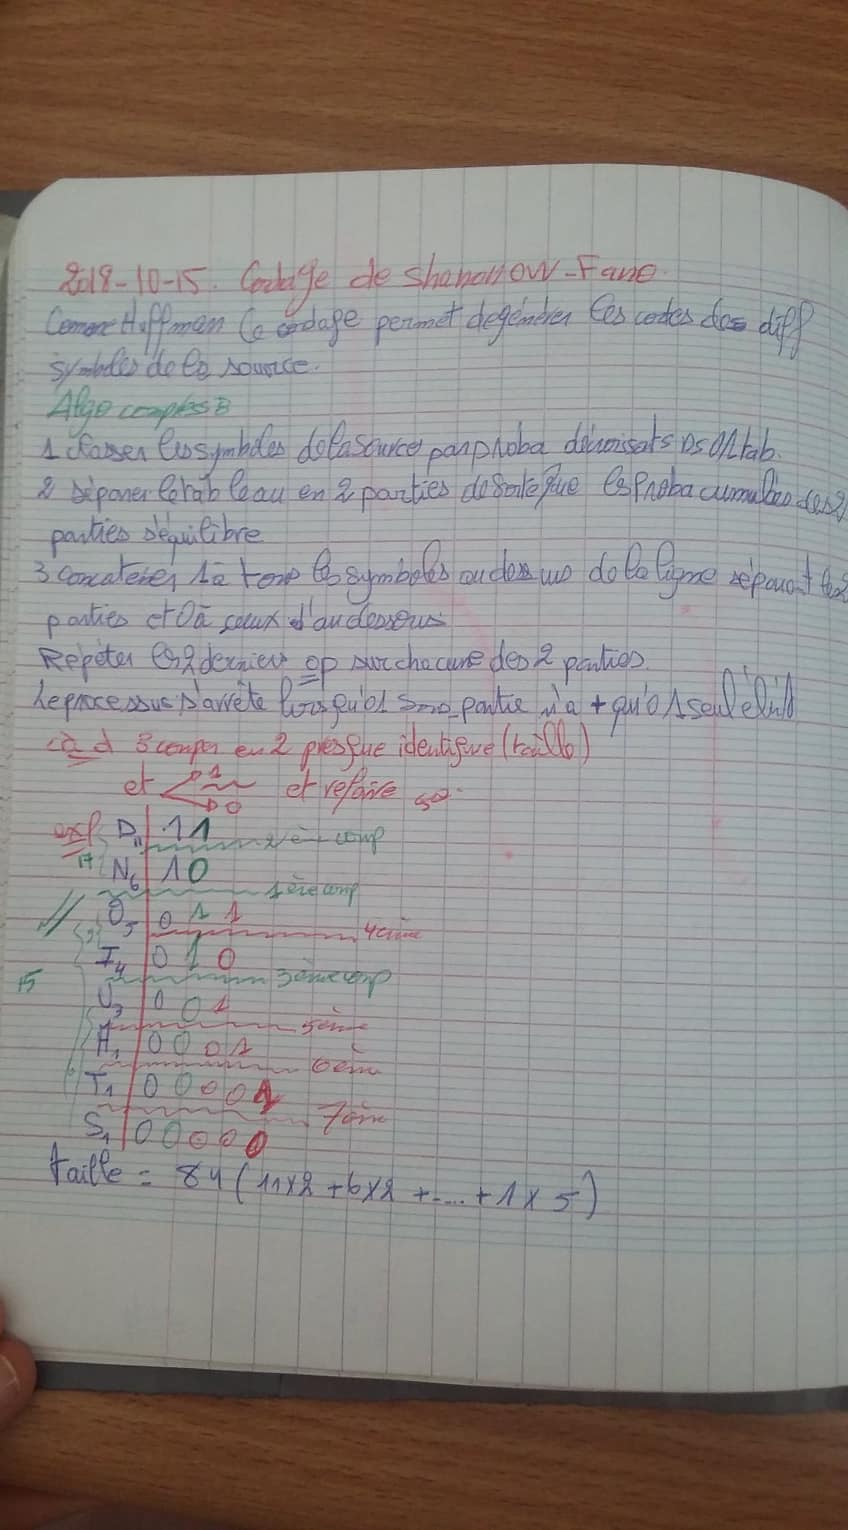 2018-10-15. Codage de Shanonow-Fano.
Comme Huffman Ce codage permet de générer les codes des diff
symboles de la source.
Algo complets B
1 classer les symboles de la source par proba décroissants Ds 01 tab.
2 séparer le tableau en 2 parties de sorte que les proba cumulées des 2
parties s'équilibre
3 concatener 1 à tous les symboles au dessus de la ligne séparant les 2
parties et 0 à ceux d'au dessous
Répéter les 2 derniers op sur chacune des 2 parties.
Le processus s'arrête lorsqu'01 partie n'a + qu'01 seul élmt
càd 3 couper en 2 presque identique (taille)
et 1 0 et refaire
exp D 11 | 11
2è coup
17 N 6 | 10
1ère coup
// O 5 | 0 1 1
4ème
I 4 | 0 1 0
15 3ème coup
U 3 | 0 0 1
5ème
H 1 | 0 0 0 1
6èm
T 1 | 0 0 0 0 1
7èm
S 1 | 0 0 0 0 0
taille = 84 (11x2 + 6x2 + .... + 1 x 5)